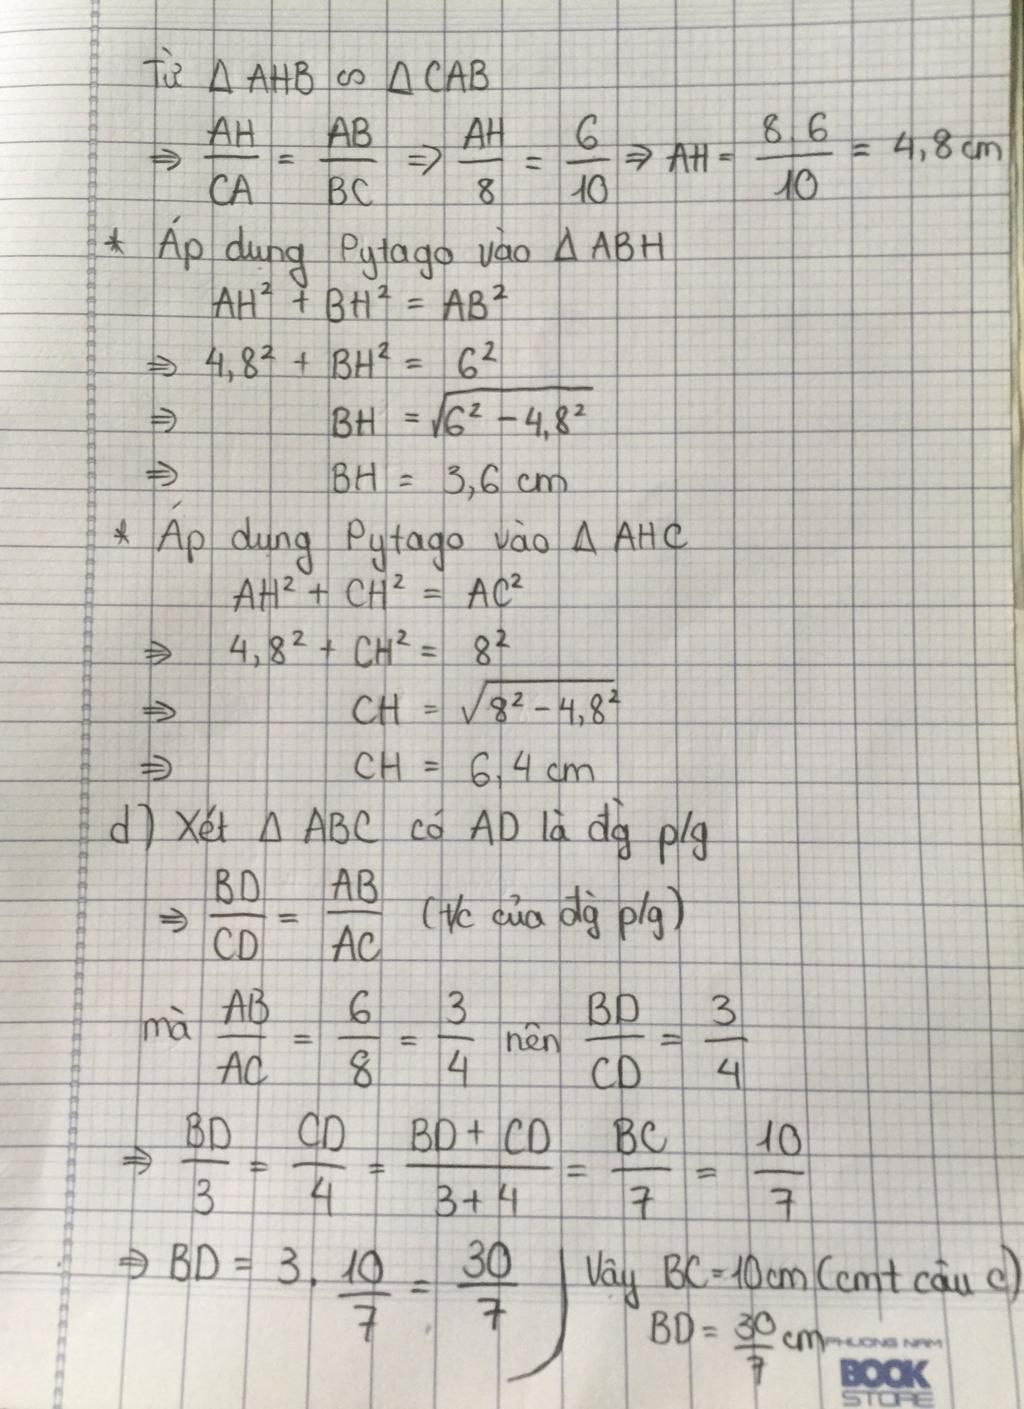 Từ Δ AHB ∽ Δ CAB
⇒ AH/CA = AB/BC ⇒ AH/8 = 6/10 ⇒ AH = 8.6/10 = 4,8 cm
* Áp dụng Pytago vào Δ ABH
AH² + BH² = AB²
⇒ 4,8² + BH² = 6²
⇒ BH = √(6² - 4,8²)
⇒ BH = 3,6 cm
* Áp dụng Pytago vào Δ AHC
AH² + CH² = AC²
⇒ 4,8² + CH² = 8²
⇒ CH = √(8² - 4,8²)
⇒ CH = 6,4 cm
d) Xét Δ ABC có AD là đg̀ p/g
⇒ BD/CD = AB/AC (t/c của đg̀ p/g)
mà AB/AC = 6/8 = 3/4 nên BD/CD = 3/4
⇒ BD/3 = CD/4 = (BD + CD)/(3+4) = BC/7 = 10/7
⇒ BD = 3. 10/7 = 30/7
Vây BC = 10cm (cmt câu c)
BD = 30/7 cm
PHUONG NAM
BOOK
STORE